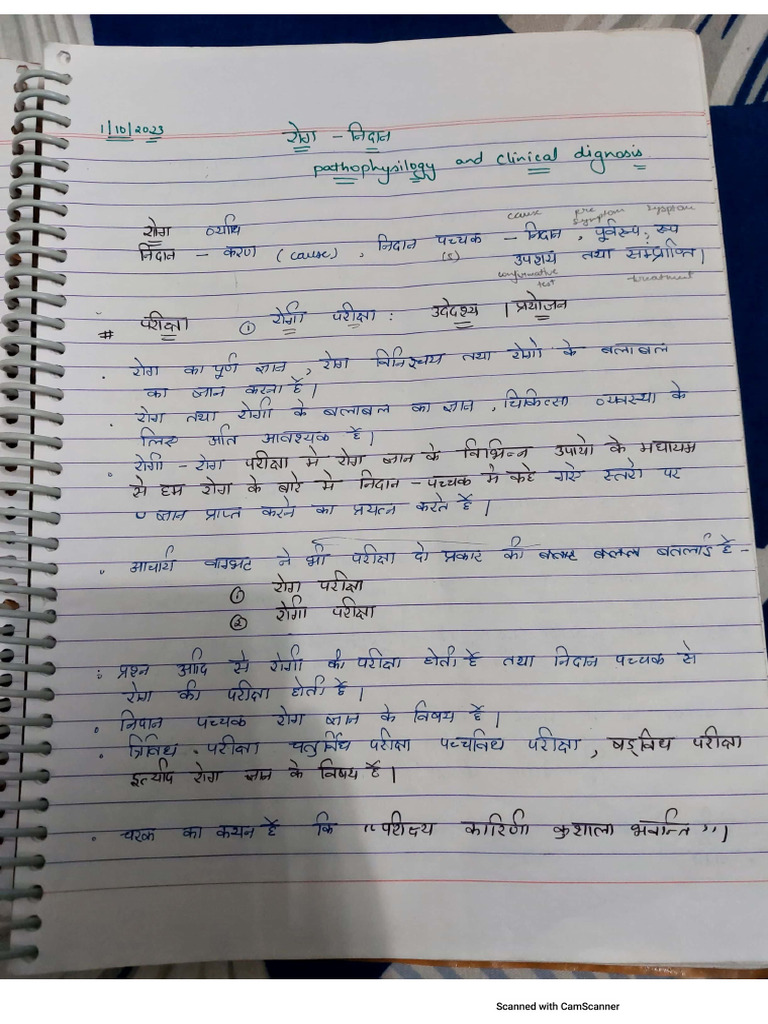 1/10/2023
रोग - निदान
pathophysilogy and clinical dignosis
cause pre symptom sysptom
रोग व्याधि
निदान - करण (cause), निदान पच्चक - निदान, पूर्वरूप, रूप
(5) उपशय तथा सम्प्राप्ति।
confirmative test treatment
# परीक्षा ① रोगी परीक्षा : उदेदश्य । प्रयोजन
. रोग का पूर्ण ज्ञान, रोग विनिश्चय तथा रोगो के बलाबल
का ज्ञान करना है।
. रोग तथा रोगी के बलाबल का ज्ञान, चिकित्सा व्यवस्था के
लिए अति आवश्यक है।
. रोगी - रोग परीक्षा मे रोग ज्ञान के विभिन्न उपायो के मधायम
से हम रोग के बारे मे निदान - पच्चक मे कहे गए स्तरो पर
ज्ञान प्राप्त करने का प्रयत्न करते है।
. आचार्य वाग्भट ने भी परीक्षा दो प्रकार की बतलाई है -
① रोग परीक्षा
② रोगी परीक्षा
: प्रश्न आदि से रोगी की परीक्षा होती है तथा निदान पच्चक से
रोग की परीक्षा होती है।
. निपान पच्चक रोग ज्ञान के विषय है।
. त्रिविध परीक्षा चतुर्विध परीक्षा पच्चविध परीक्षा, षड्विध परीक्षा
इत्यादि रोग ज्ञान के विषय है।
. चरक का कथन है कि "परीक्ष्य कारिणी कुशाला भवन्ति"।
Scanned with CamScanner